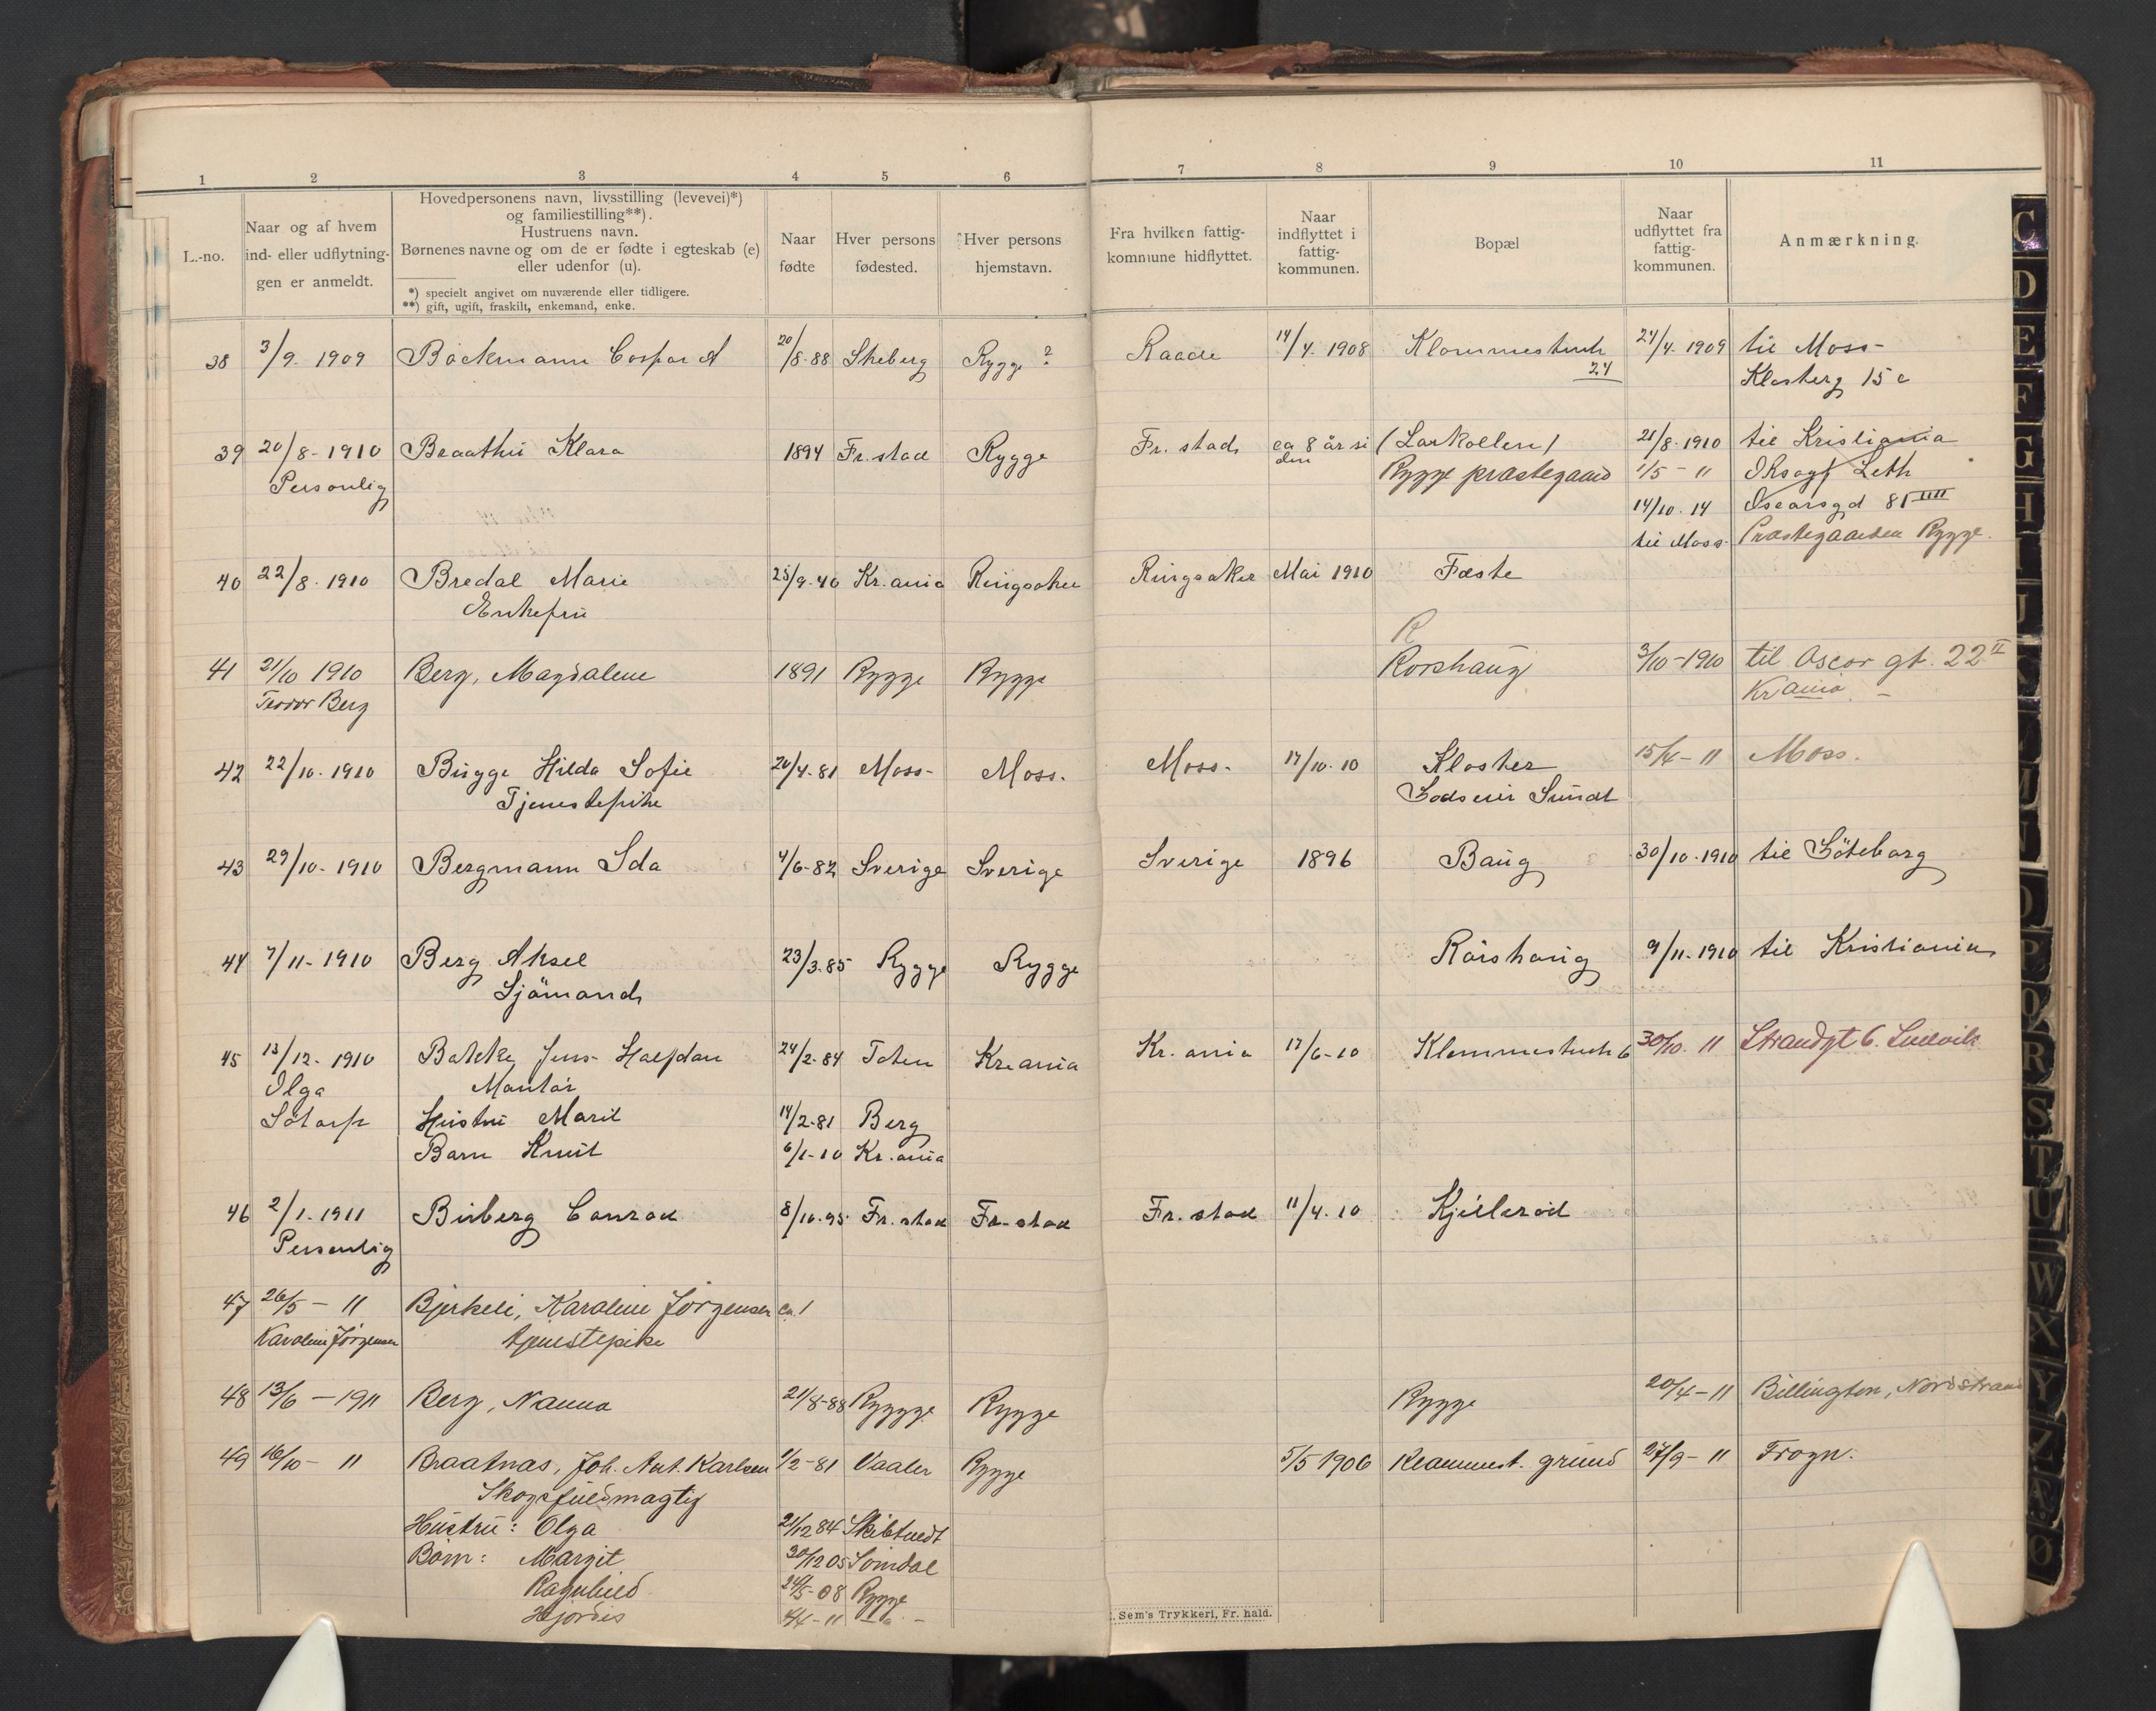 1 2 3 4 5 6 7 8 9 10 11
L.-no.
Naar og af hvem
ind- eller udflytnin-
gen er anmeldt.
Hovedpersonens navn, livsstilling (levevei)*)
og familiestilling**).
Hustruens navn.
Børnenes navne og om de er fødte i egteskab (e)
eller udenfor (u).
*) specielt angivet om nuværende eller tidligere.
**) gift, ugift, fraskilt, enkemand, enke.
Naar
fødte
Hver persons
fødested.
Hver persons
hjemstavn.
Fra hvilken fattig-
kommune hidflyttet.
Naar
indflyttet i
fattig-
kommunen.
Bopæl
Naar
udflyttet fra
fattig-
kommunen.
Anmærkning.
38 3/9. 1909 Bockmann Caspar A 20/8-88 Skeberg Rygge ? Raade 14/4. 1908 Klommestruch 24/4. 1909 til Moss-
24 Klosterg 15 c
39 20/8-1910 Braathu Klara 1894 Fr.stad Rygge Fr.stad ca 8 år si (Larkollen) 21/8.1910 til Kristiania
den Rygge præstegaard 1/5 - 11 Leth
Personlig 14/10.14 Oscarsgd 81 IIII
til Moss- Præstegaarden Rygge.
40 22/8.1910 Bredal Marie 25/9-40 Kr.ania Ringsaker Ringsaker Mai 1910 Fæste
Enkefru
R
41 21/10 1910 Berg, Magdalene 1891 Rygge Rygge Rorshaug 3/10-1910 til Oscar gt. 22 II
Teodor Berg Krania. -
42 22/10.1910 Bugge Hilda Sofie 20/4-81 Moss- Moss. Moss. 17/10.10 Kloster 15/4-11 Moss.
Tjenestepike Godseier Sundt
43 29/10-1910 Bergmann Ida 4/6-82 Sverige Sverige Sverige 1896 Baug 30/10.1910 til Göteborg
44 7/11-1910 Berg Aksel 23/3.85 Rygge Rygge Rörshaug 9/11.1910 til Kristiania
Sjömand
45 13/12.1910 Bakke Jens Halfdan 24/2-84 Toten Kr.ania Kr.ania 17/6-10 Klommestruch 6 30/10. 11 Strandgt 6.
Olga Montör
Sötorp Hustru Marit 14/2-81 Berg
Barn Knut 6/1-10 Kr.ania
46 2/1.1911 Birberg Conrad 8/10.95 Fr.stad Fr.stad Fr.stad 11/4.10 Kjilleröd
Personlig
47 26/5 - 11 Bjerkeli, Karoline Jörgensen ca. 1
Karoline Jörgensen tjenestepike
48 13/6 - 1911 Berg, Nanna 21/8-88 Ryggge Rygge Rygge 20/4-11 Billington, Nordstrand
49 16/10- 11 Braatnas, Joh. Ant. Karlsen 1/2-81 Vaaler Rygge 5/5 1906 Klommest. grund 27/9-11 Frogn.
Skogsfuldmægtig
Hustru: Olga 21/12 84 Skibtvedt
Börn: Margit 30/12 05 Somdal
Ragnhild 24/5-08 Rygge
Hjördis 4/4-11 -
Sem's Trykkeri, Fr. hald.
C
D
E
F
G
H
I
J
O
P
Q
R
S
T
U
W
X
Y
Z
Æ
Ø